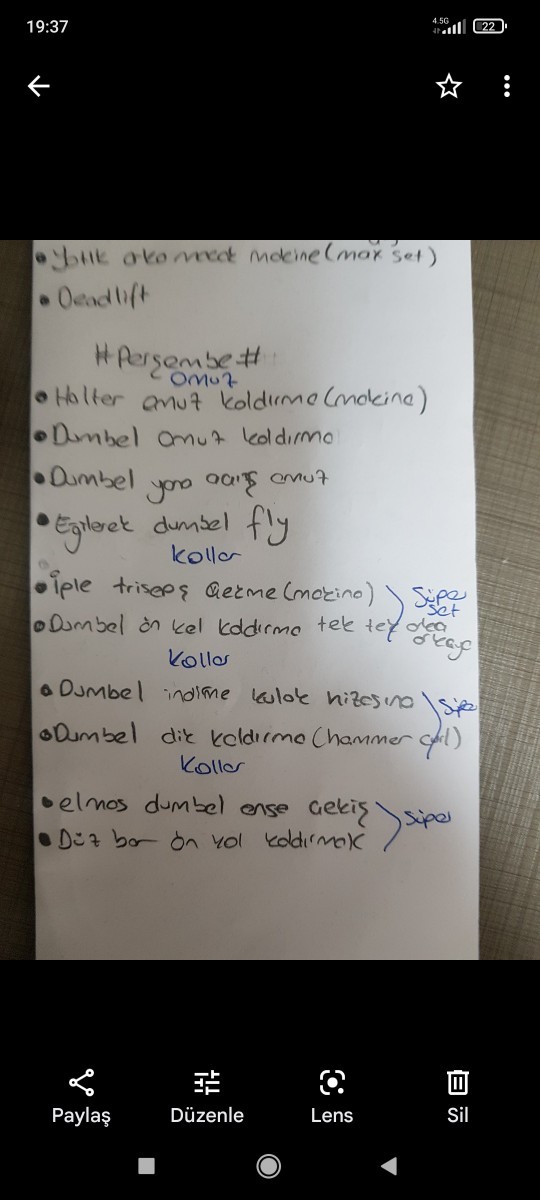 19:37
4.5G
22
• Yatık arka bacak makine (max set)
• Deadlift
#Perşembe#
Omuz
• Halter omuz kaldırma (makina)
• Dumbel omuz kaldırma
• Dumbel yana açış omuz
• Egilerek dumbel fly
Kollar
• İple triseps çekme (makina)
Süper set
• Dumbel ön kol kaldırma tek tek
Kollar
• Dumbel indirme kulak hizasına
Süper
• Dumbel dik kaldırma (hammer curl)
Kollar
• elmas dumbel ense çekiş
Süper
• Düz bar ön kol kaldırmak
Paylaş
Düzenle
Lens
Sil